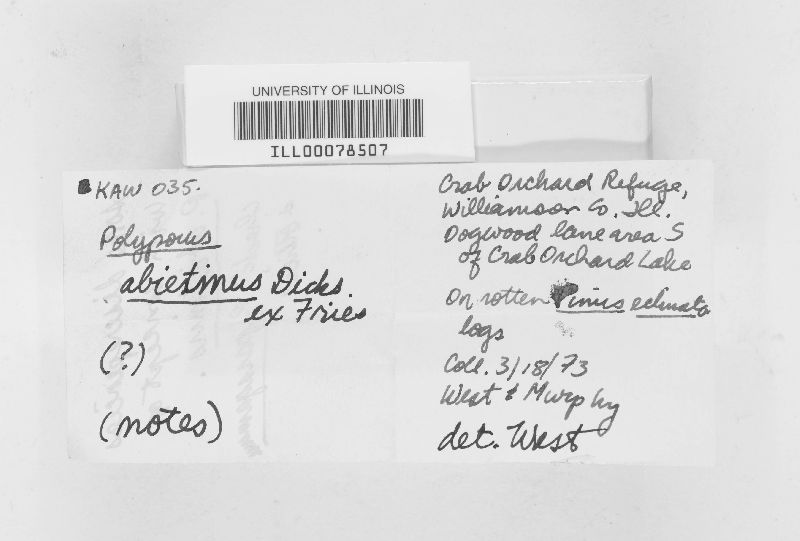 UNIVERSITY OF ILLINOIS
ILL00078507
KAW 035.
Polyporus
abietinus Dicks.
ex Fries
(?)
(notes)
Crab Orchard Refuge,
Williamson Co. Ill.
Dogwood lane area S
of Crab Orchard Lake
On rotten Pinus echinata
logs
Coll. 3/18/73
West & Murphy
det. West